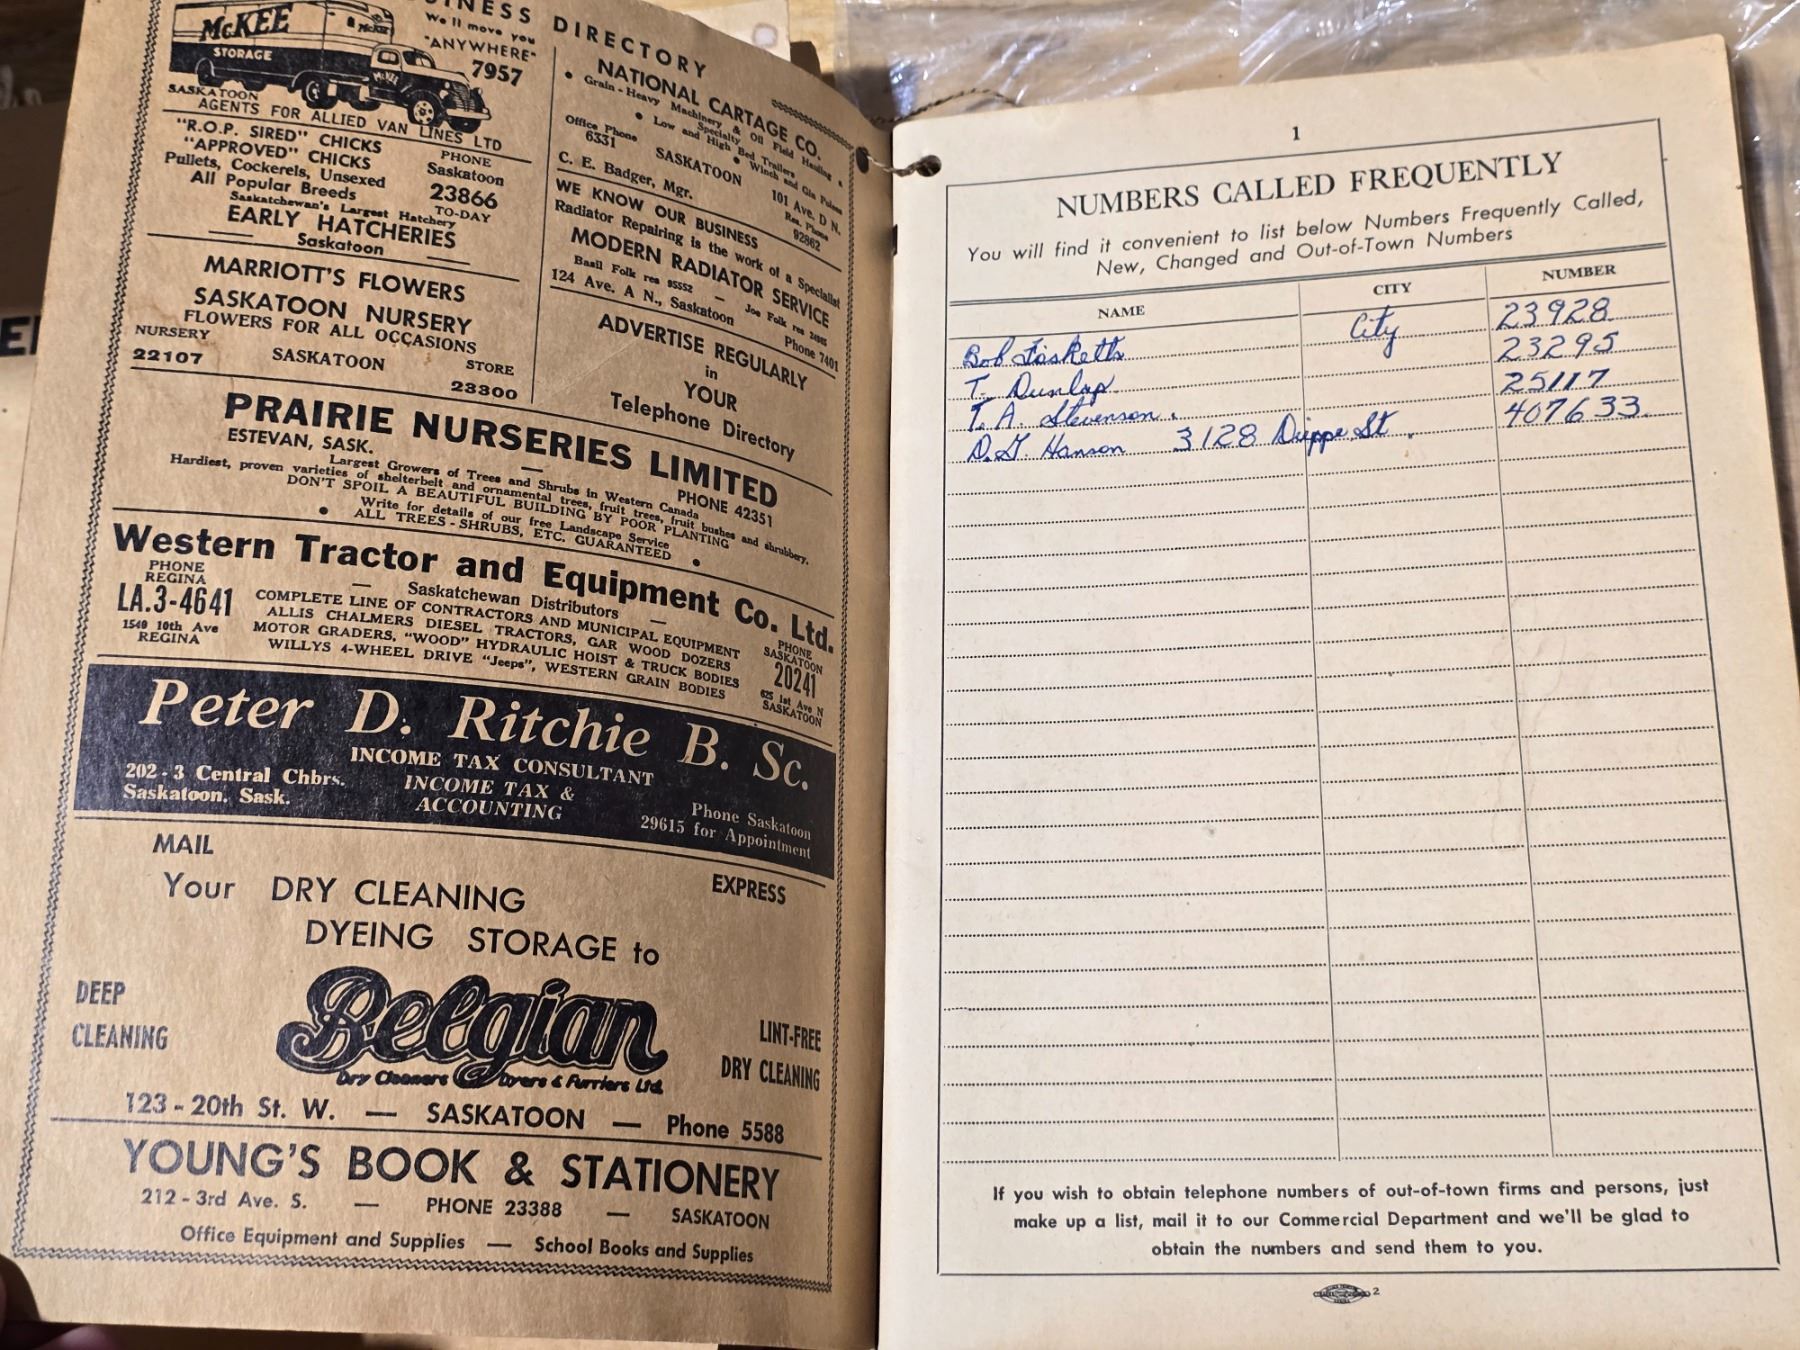 BUSINESS DIRECTORY
McKEE
McKEE
STORAGE
SASKATOON
We'll move you
"ANYWHERE"
7957
AGENTS FOR ALLIED VAN LINES LTD
"R.O.P. SIRED" CHICKS
"APPROVED" CHICKS
Pullets, Cockerels, Unsexed
All Popular Breeds
Saskatchewan's Largest Hatchery
EARLY HATCHERIES
Saskatoon
PHONE
Saskatoon
23866
TO-DAY
MARRIOTT'S FLOWERS
SASKATOON NURSERY
FLOWERS FOR ALL OCCASIONS
NURSERY SASKATOON STORE
22107 23300
NATIONAL CARTAGE CO.
• Grain - Heavy Machinery & Oil Field Hauling •
Specialty
• Low and High Bed Trailers
• Winch and Gin Poles
Office Phone
6331
SASKATOON
101 Ave. D N.
C. E. Badger, Mgr.
Res. Phone
92862
WE KNOW OUR BUSINESS
Radiator Repairing is the work of a Specialist
MODERN RADIATOR SERVICE
Basil Folk res 95552 — Joe Folk res
124 Ave. A N., Saskatoon Phone 7401
ADVERTISE REGULARLY
in
YOUR
Telephone Directory
PRAIRIE NURSERIES LIMITED
ESTEVAN, SASK. — PHONE 42351
Largest Growers of Trees and Shrubs in Western Canada
Hardiest, proven varieties of shelterbelt and ornamental trees, fruit trees, fruit bushes and shrubbery.
DON'T SPOIL A BEAUTIFUL BUILDING BY POOR PLANTING
Write for details of our free Landscape Service
• ALL TREES - SHRUBS, ETC. GUARANTEED •
Western Tractor and Equipment Co. Ltd.
PHONE
REGINA
LA.3-4641
1540 10th Ave
REGINA
— Saskatchewan Distributors —
COMPLETE LINE OF CONTRACTORS AND MUNICIPAL EQUIPMENT
ALLIS CHALMERS DIESEL TRACTORS, GAR WOOD DOZERS
MOTOR GRADERS, "WOOD" HYDRAULIC HOIST & TRUCK BODIES
WILLYS 4-WHEEL DRIVE "Jeeps", WESTERN GRAIN BODIES
PHONE
SASKATOON
20241
625 1st Ave N
SASKATOON
Peter D. Ritchie B. Sc.
INCOME TAX CONSULTANT
202 - 3 Central Chbrs.
Saskatoon, Sask.
INCOME TAX &
ACCOUNTING
Phone Saskatoon
29615 for Appointment
MAIL EXPRESS
Your DRY CLEANING
DYEING STORAGE to
DEEP
CLEANING
Belgian
Dry Cleaners Dyers & Furriers Ltd.
LINT-FREE
DRY CLEANING
123 - 20th St. W. — SASKATOON — Phone 5588
YOUNG'S BOOK & STATIONERY
212 - 3rd Ave. S. — PHONE 23388 — SASKATOON
Office Equipment and Supplies — School Books and Supplies
1
NUMBERS CALLED FREQUENTLY
You will find it convenient to list below Numbers Frequently Called,
New, Changed and Out-of-Town Numbers
NAME CITY NUMBER
Bob Fosketts City 23928
T. Dunlop 23295
T. A. Stevenson. 25117
D.G. Hanson 3128 Dieppe St. 407633
If you wish to obtain telephone numbers of out-of-town firms and persons, just
make up a list, mail it to our Commercial Department and we'll be glad to
obtain the numbers and send them to you.
2